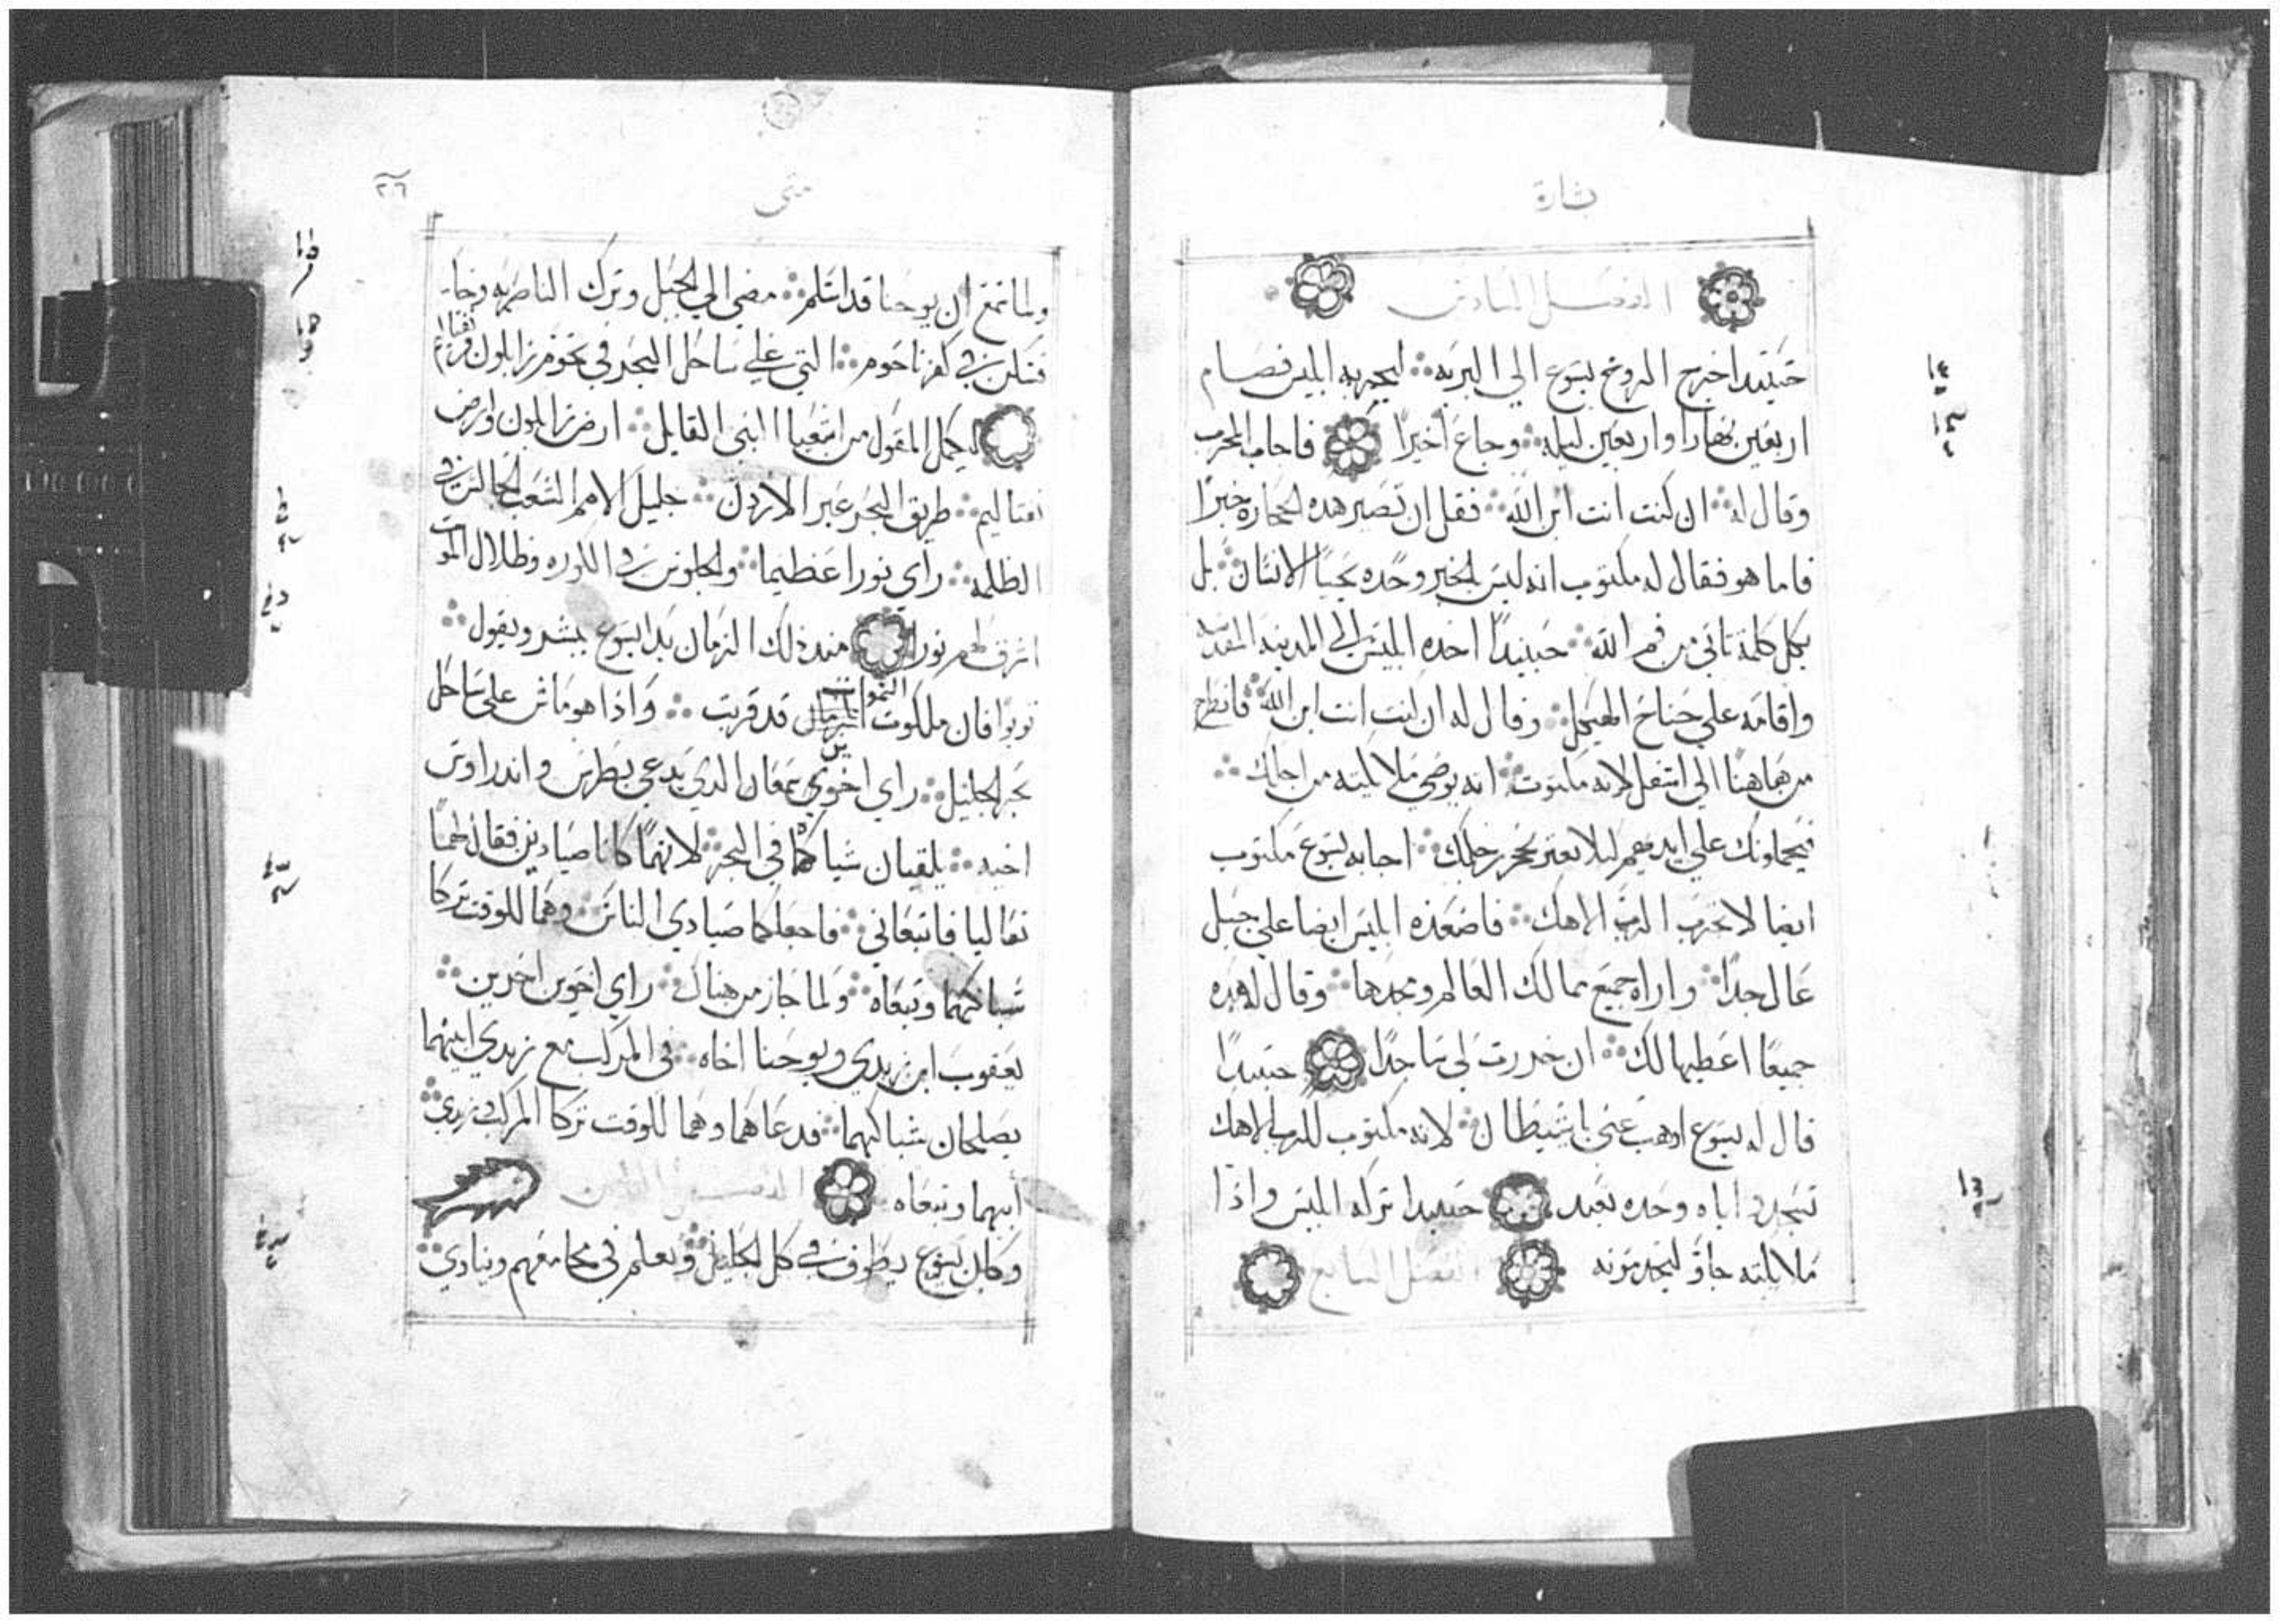 بشارة
الفصل السادس
حينيدا اخرج الروح يسوع الي البريه ليجربه ابليس فصام
اربعين نهارا واربعين ليله وجاع اخيرا فاجاب المجرب
وقال له ان كنت انت ابن الله فقل ان تصير هده الحجاره خبزا
فاما هو فقال له مكتوب انه ليس بالخبز وحده يحيا الانسان بل
بكل كلمة تاتي من فم الله حينيدا اخده ابليس الي المدينه المقدسه
واقامه علي جناح الهيكل وقال له ان كنت انت ابن الله فانطرح
من هاهنا الي اسفل لانه مكتوب انه يوصي ملايكته من اجلك
فيحملونك علي ايديهم ليلا تعتر بحجر رجلك اجابه يسوع مكتوب
ايضا لا تجرب الرب الاهك فاصعده ابليس ايضا علي جبل
عال جدا واراه جميع ممالك العالم ومجدها وقال له هده
جميعا اعطيها لك ان خررت لي ساجدا حينيدا
قال له يسوع ادهب عني ياشيطان لانه مكتوب للرب الاهك
تسجد واياه وحده تعبد حينيدا تركه ابليس واذا
ملايكته جاو ليخدمونه الفصل السابع
١٤
١٣
متى
٢٦
ولما سمع ان يوحنا قد اسلم مضي الي الجبل وترك الناصريه وجا
فسكن في كفرناحوم التي علي ساحل البحر في تخوم زابلون
ليكمل المقول من اشعيا النبي القايل ارض زابلون وارض
نفتاليم طريق البحر عبر الاردن جليل الامم الشعب الجالس في
الظلمه راي نورا عظيما والجلوس في الكوره وظلال الموت
اشرق لهم نور مندذلك الزمان بدا يسوع يبشر ويقول
توبوا فان ملكوت السموات قد قربت واذا هو ماش علي ساحل
بحر الجليل راي اخوين سمعان الدي يدعي بطرس واندراوس
اخيه يلقيان شباكهما في البحر لانهما كانا صيادين فقال لهما
تعاليا فاتبعاني فاجعلكما صيادي الناس وهما للوقت تركا
شباكهما وتبعاه ولما جاز من هناك راي اخوين اخرين
يعقوب ابن زبدي ويوحنا اخاه في المركب مع زبدي ابيهما
يصلحان شباكهما فدعاهما وهما للوقت تركا المركب وزبدي
ابيهما وتبعاه الفصل الثامن
وكان يسوع يطوف في كل الجليل ويعلم في مجامعهم وينادي